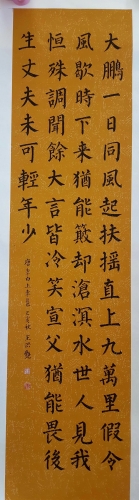 大鵬一日同風起扶摇直上九萬里假令
風歇時下来猶能簸却滄溟水世人見我
恒殊調聞餘大言皆冷笑宣父猶能畏後
生丈夫未可輕年少
唐李白上李邕